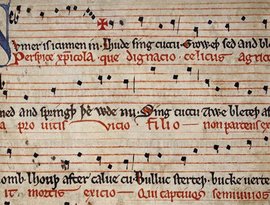 Svmer is icumen in. Lhude sing cuccu. Groweþ sed and ble
Perspice xpicola. que dignacio. celicus agrico
med and springþ þe wde nu. Sing cuccu Awe bleteþ af
a pro uitis vicio filio non parcens ex
omb lhouþ after calue cu. Bulluc sterteþ. bucke uerteþ
it mortis exicio Qui captiuos semiuiuos